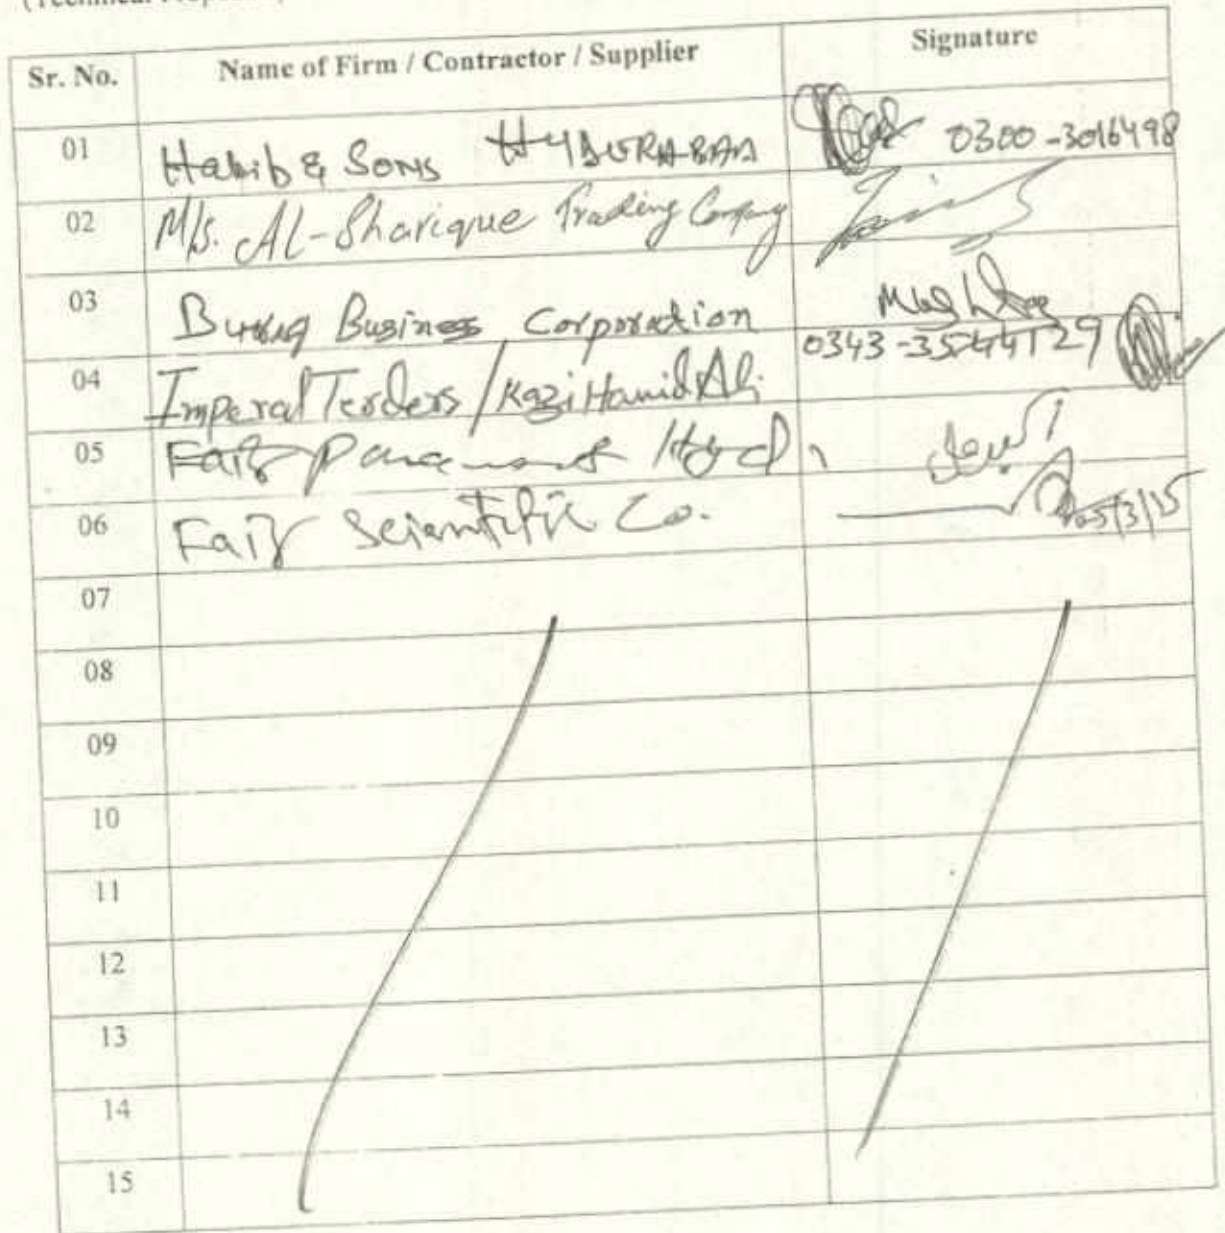 Sr. No. Name of Firm / Contractor / Supplier Signature
01 Habib & Sons HYDERABAD 0300-3016498
02 M/s. AL-Sharique Trading Company
03 Buraq Business Corporation
04 Imperal Terders / Kazi Hamid Ali 0343-3544129
05 Faiz Hyd
06 Faiz Scientific Co. 05/3/15
07
08
09
10
11
12
13
14
15